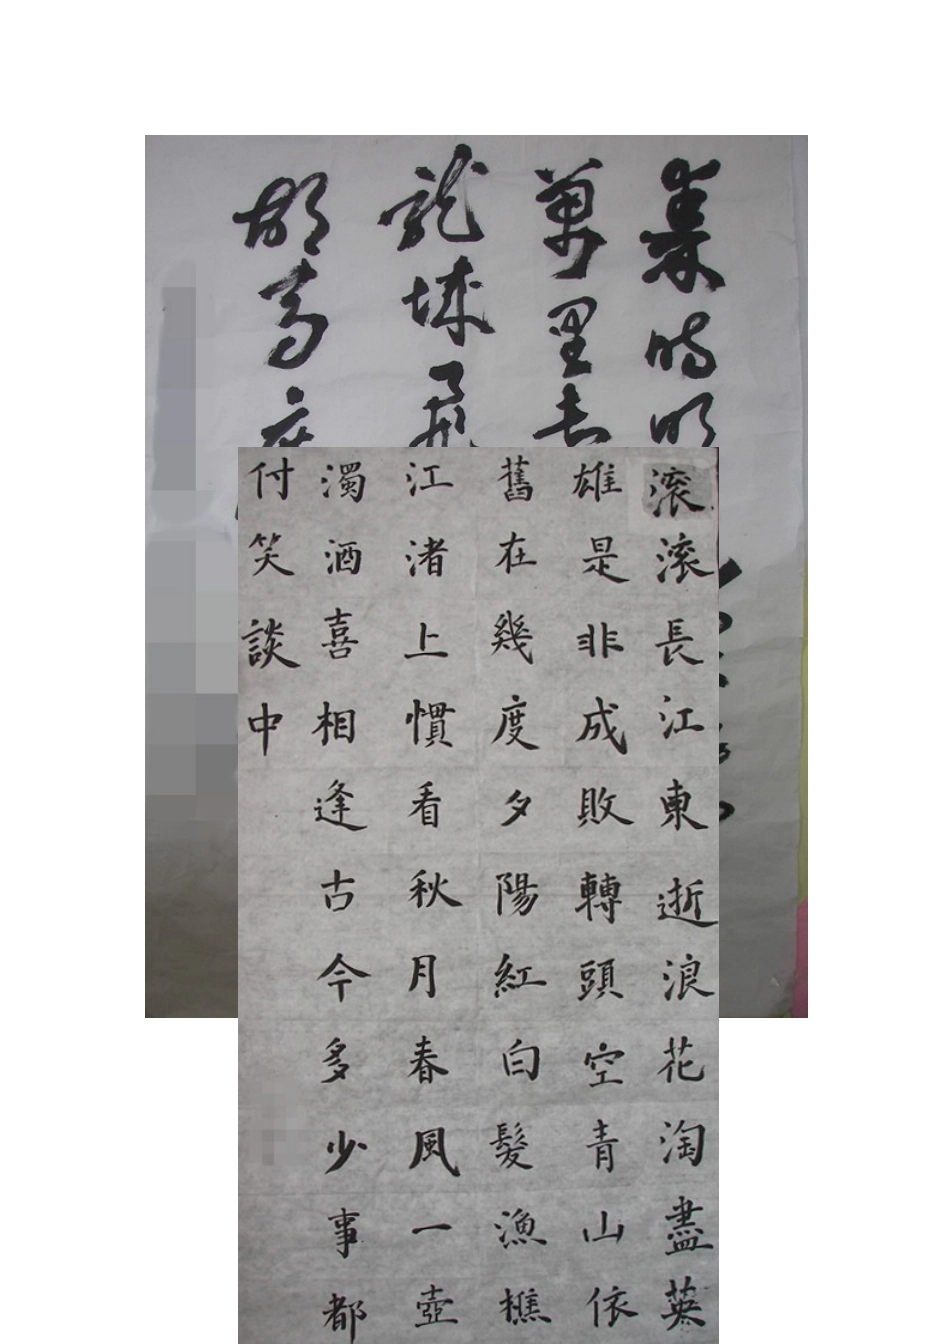 秦時明
萬里
龍城飛
胡馬度
滚滚長江東逝浪花淘盡英
雄是非成敗轉頭空青山依
舊在幾度夕陽紅白髮漁樵
江渚上慣看秋月春風一壺
濁酒喜相逢古今多少事都
付笑談中